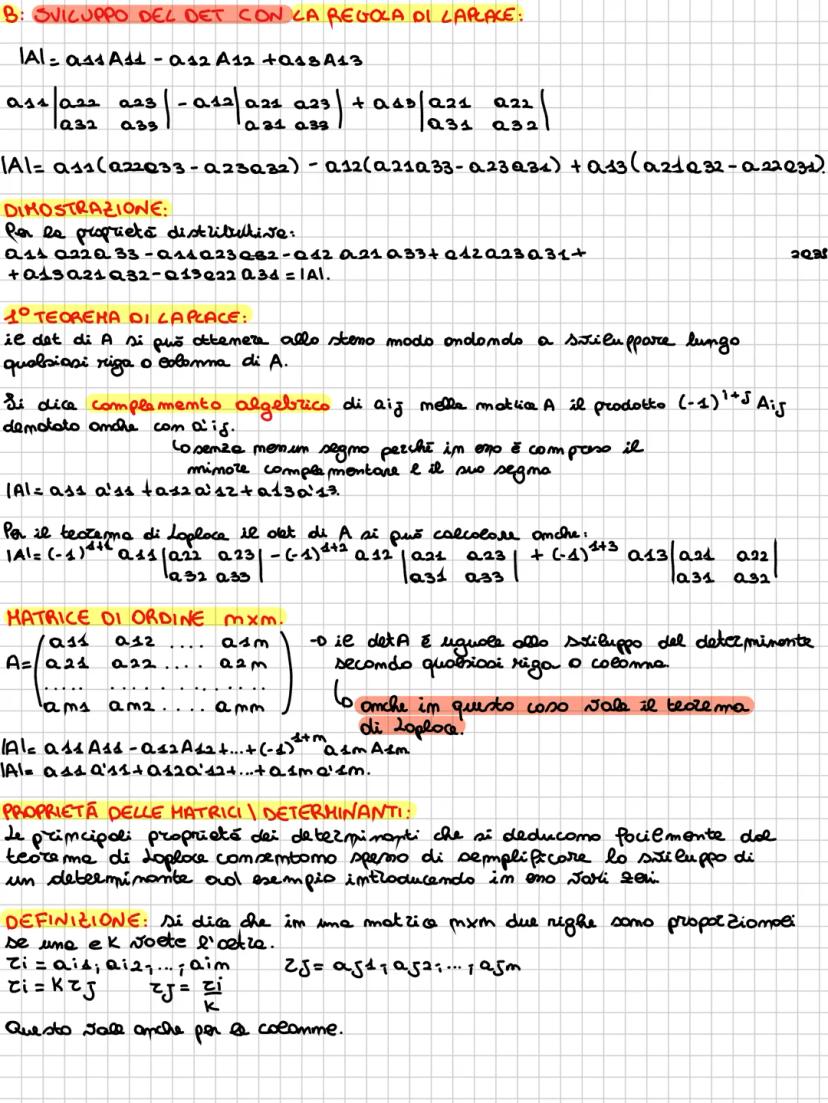 B: SVILUPPO DEL DET CON LA REGOLA DI LAPLACE:
|A| = a11 A11 - a12 A12 + a13 A13
a11 |a22 a23| - a12 |a21 a23| + a13 |a21 a22|
|a32 a33| |a31 a33| |a31 a32|
|A| = a11(a22a33 - a23a32) - a12(a21a33 - a23a31) + a13(a21a32 - a22a31).
DIMOSTRAZIONE:
Per la proprietà distributiva:
a11 a22 a33 - a11 a23 a32 - a12 a21 a33 + a12 a23 a31 +
+ a13 a21 a32 - a13 a22 a31 = |A|.
1° TEOREMA DI LAPLACE:
il det di A si può ottenere allo stesso modo andando a sviluppare lungo
qualsiasi riga o colonna di A.
Si dice complemento algebrico di aij nella matrice A il prodotto (-1)^i+j Aij
denotato anche con a'ij.
↳ senza nessun segno perché in esso è compreso il
minore complementare e il suo segno
|A| = a11 a'11 + a12 a'12 + a13 a'13.
Per il teorema di Laplace il det di A si può calcolare anche:
|A| = (-1)^1+1 a11 |a22 a23| - (-1)^1+2 a12 |a21 a23| + (-1)^1+3 a13 |a21 a22|
|a32 a33| |a31 a33| |a31 a32|
MATRICE DI ORDINE nxn.
(a11 a12 .... a1n) → il detA è uguale allo sviluppo del determinante
A= (a21 a22 .... a2n) secondo qualsiasi riga o colonna.
(..... ..............)
(an1 an2 .... ann) ↳ anche in questo caso vale il teorema
di Laplace.
|A| = a11 A11 - a12 A12 + ... + (-1)^1+n a1n A1n
|A| = a11 a'11 + a12 a'12 + ... + a1n a'1n.
PROPRIETÀ DELLE MATRICI \ DETERMINANTI:
Le principali proprietà dei determinanti che si deducono facilmente dal
teorema di Laplace consentono spesso di semplificare lo sviluppo di
un determinante ad esempio introducendo in esso vari zeri.
DEFINIZIONE: Si dice che in una matrice nxn due righe sono proporzionali
se una e K volte l'altra.
ri = ai1, ai2, ..., ain rj = aj1, aj2, ..., ajn
ri = K rj rj = ri/K
Questo vale anche per le colonne.